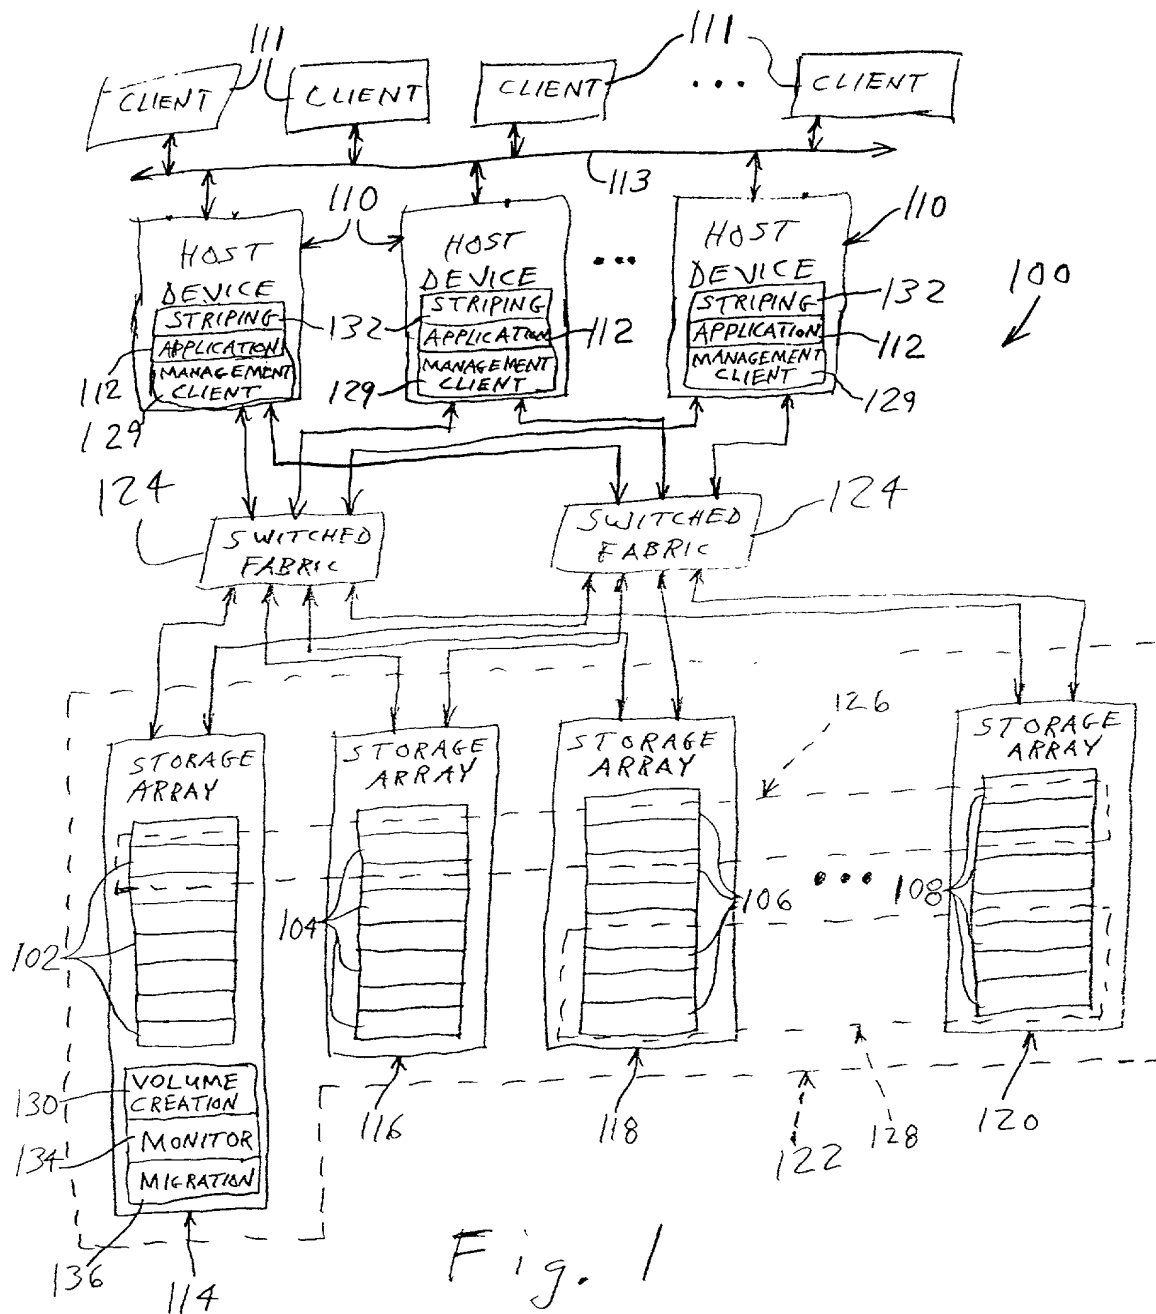 111
111
CLIENT
CLIENT
CLIENT
...
CLIENT
113
110
110
HOST
DEVICE
STRIPING
APPLICATION
MANAGEMENT
CLIENT
HOST
DEVICE
STRIPING
APPLICATION
MANAGEMENT
CLIENT
...
HOST
DEVICE
STRIPING
APPLICATION
MANAGEMENT
CLIENT
100
132
132
112
112
112
129
129
129
124
SWITCHED
FABRIC
SWITCHED
FABRIC
124
126
STORAGE
ARRAY
STORAGE
ARRAY
STORAGE
ARRAY
STORAGE
ARRAY
102
104
106
...
108
130
VOLUME
CREATION
134
MONITOR
MIGRATION
136
114
116
118
122
128
120
Fig. 1